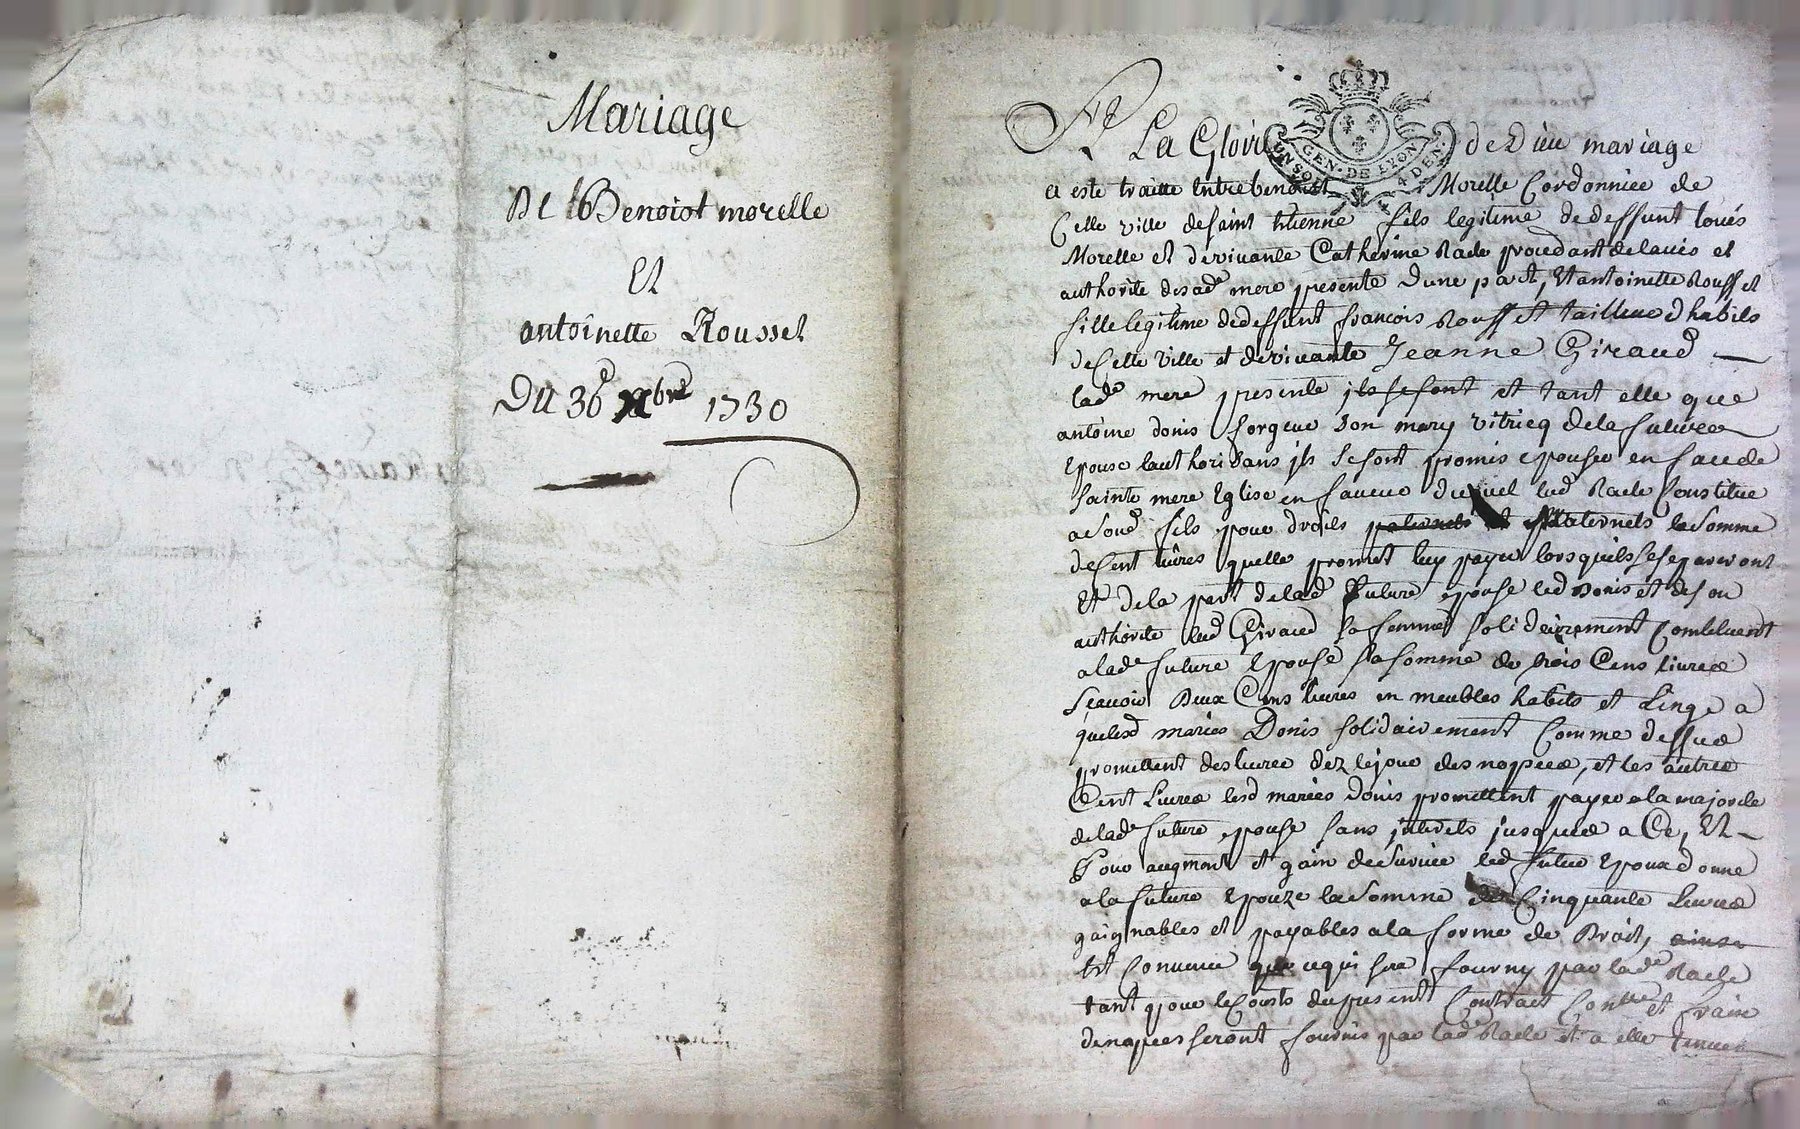 Mariage
De Benoiot morelle
Et
antoinette Roussel
Du 30e xbre 1730
A La Gloire de Dieu mariage
GEN. DE LYON
4 DEN.
a este traitte Entre benoist Morelle Cordonnier de
Cette ville de saint Etienne fils legitime de deffunt loüis
Morelle et de vivante Catherine Racle procedant de lavis et
authorite de sade mere presente dune part, Et antoinette Rousset
fille legitime de deffunt francois Rousset tailleur d habits
de Cette ville et de vivante Jeanne Giraud
lade mere presente ils se font et tant elle que
antoine donis forgeur son mary vitricq de la future
Epouse lauthorisans ils se sont promis epouser en face de
sainte mere Eglise en faveur duquel lad Racle Constitue
a soud fils pour droits paternels et Maternels la somme
de Cent livres quelle promet luy payer lors quils se separeront
Et de la part de lade future epouse led Donis et de son
authorite lad Giraud sa femme solidairement Constituent
a lade future Epouse la somme de trois Cens livres
scavoir Deux Cens livres en meubles habits et Linge a
quelesd mariés Donis solidairement Comme dessus
promettent deslivrer dez le jour des nopces, et les autres
Cent Livres lesd mariés donis promettent payer a la majorité
de lade future epouse sans interets jusques a Ce, Et
Pour augment et gain de survie led futur Epoux donne
a la future Epouze la somme de Cinquante Livres
gaignables et payables a la forme de Droit, ainsy
Est Convenu que ce qui sera fourny par lade Racle
tant pour le Couts du present Contract Contrle et frais
de nopces seront fournis par lade Racle et a elle